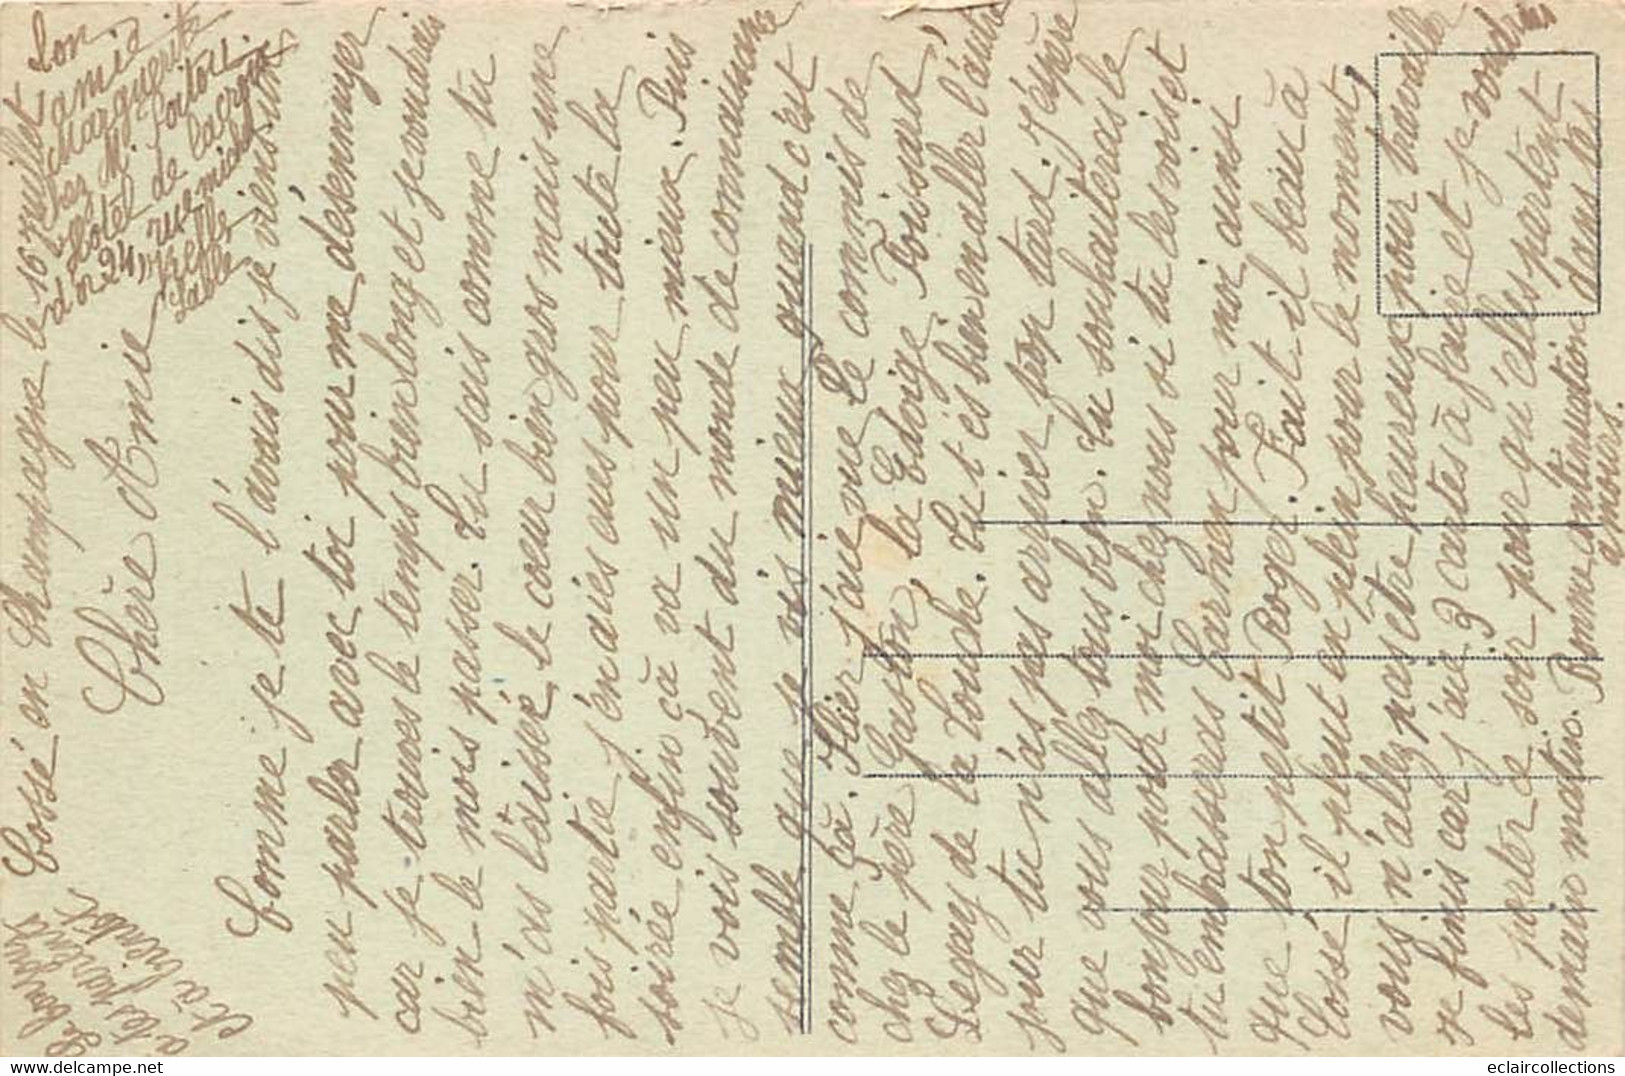 Cossé en Champagne le 10 juillet
Chère Amie
Comme je te l'avais dis je viens un
peu parler avec toi pour me désennuyer
car je trouves le temps bien long et je voudrais
bien le mois passer. Tu sais comme tu
m'as laissé le cœur bien gros mais une
fois partie j'en avies aus pour toute la
soirée enfin cà va un peu mieux. Puis
je vois souvent du monde de connaissance
semble que je vis mieux quand c'est
comme cà. Hier j'aie vue Le commis de
chez le père Gaston, la Edvige Poissard
Legay de la Touche. Tu t'es bien enaller l'autre
jour tu n'as pas arriver trop tard j'espère
que vous allez tous bien. Tu souhauteras le
bonjour pour moi chez nous si tu les vois et
tu embrasseras Carmen pour moi ainsi
que ton petit Roger. Fait-il beau à
Cossé il pleut en plein pour le moment,
vous n'allez pas être heureux pour travailler
Je finis car j'aie 3 cartes à faire et je voudrais
les porter ce soir pour qu'elles partent
demain matin. Bonne continuation dans tes
amours.
Ton
amie
Marguerite
chez Mr Poitou
Hôtel de la croix
d'or 24, rue michel
gelles
Sablé
Le bonjour
a tes parents
et à bientôt
eclaircollections